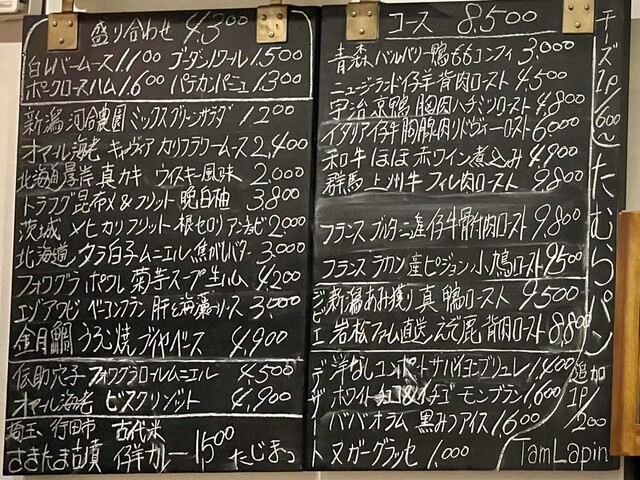 盛り合わせ 4,300
白レバームース 1,100 ゴーダノワール 1,500
ポークロースハム 1,600 パテカンパーニュ 1,300
新潟 河合農園 ミックスグリーンサラダ 1200
オマール海老 キャヴィア カリフラワームース 2,400
北海道 厚岸 真カキ ウイスキー風味 2,000
トラフグ 昆布〆&フリット 晩白柚 3,800
茨城 メヒカリフリット 根セロリ 2,000
北海道 タラ白子ムニエル、焦がしバター 3,000
フォワグラ ポワレ 菊芋スープ 生ハム 4,200
エゾアワビ ベーコンフラン 肝と海藻ソース 3,000
金目鯛 うろこ焼 ブイヤベース 4,900
伝助穴子 フォワグラロールムニエル 4,500
オマール海老 ビスクリゾット 4,900
埼玉 行田市 古代米
さきたま古墳 仔羊カレー 1,500 たじまっ
コース 8,500
青森 バルバリー鴨ももコンフィ 3,000
ニュージーランド仔羊 背肉ロースト 4,500
宇治 京鴨 胸肉ハチミツロースト 4,800
イタリア仔牛胸腺肉リ・ド・ヴォーロースト 6,000
和牛 ほほ 赤ワイン煮込み 4,900
群馬 上州牛 フィレ肉ロースト 9,800
フランス ブルターニュ産 仔牛骨付肉ロースト 9,800
フランス ラカン産ピジョン 小鳩ロースト 9,500
ジビエ
新潟 あみ獲り真鴨ロースト 9,500
岩松ファーム直送 えぞ鹿 背肉ロースト 8,800
デザート
洋なしコンポート サバイヨンブリュレ 1,400
ホワイト イチゴ モンブラン 1,600
ババオラム 黒みつアイス 1,600
ヌガーグラッセ 1,000
チーズ 1P/600〜
たむらパン
追加 1P/200
TamLapin